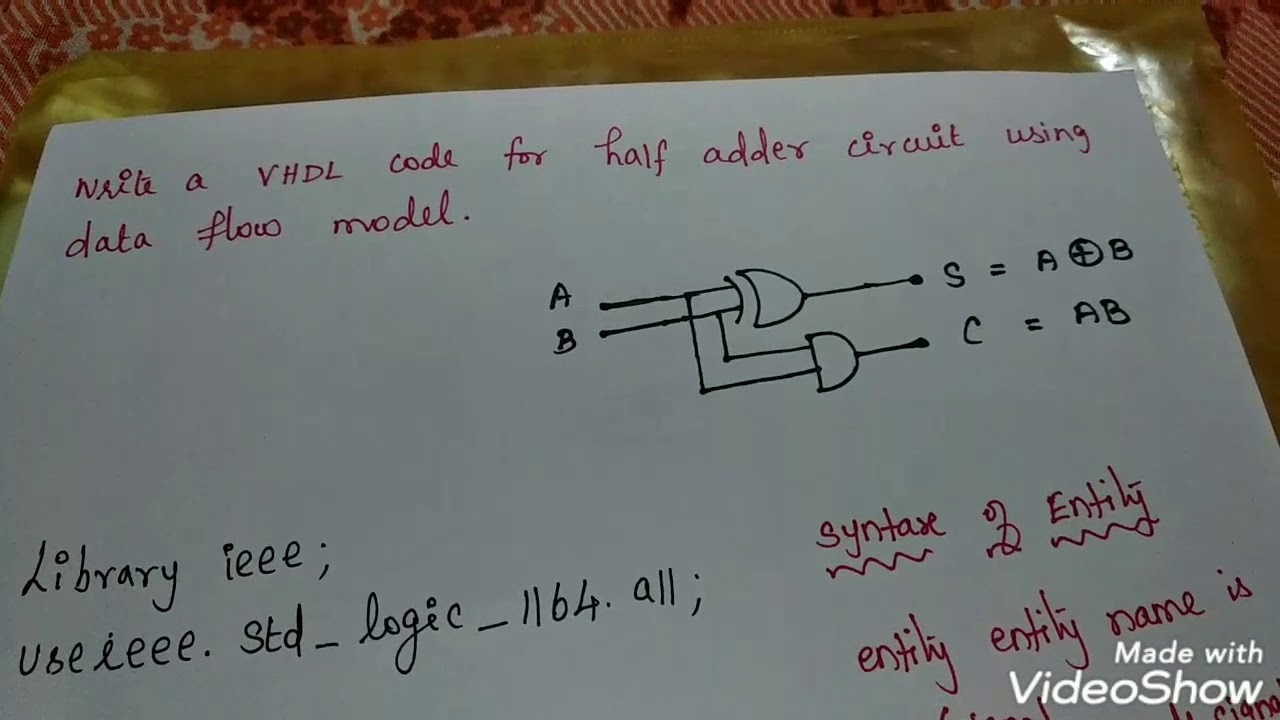 Write a VHDL code for half adder circuit using
data flow model.
A
B
S = A ⊕ B
C = AB
Library ieee;
use ieee. std_logic_1164. all;
Syntax of Entity
entity entity name is
Made with
VideoShow